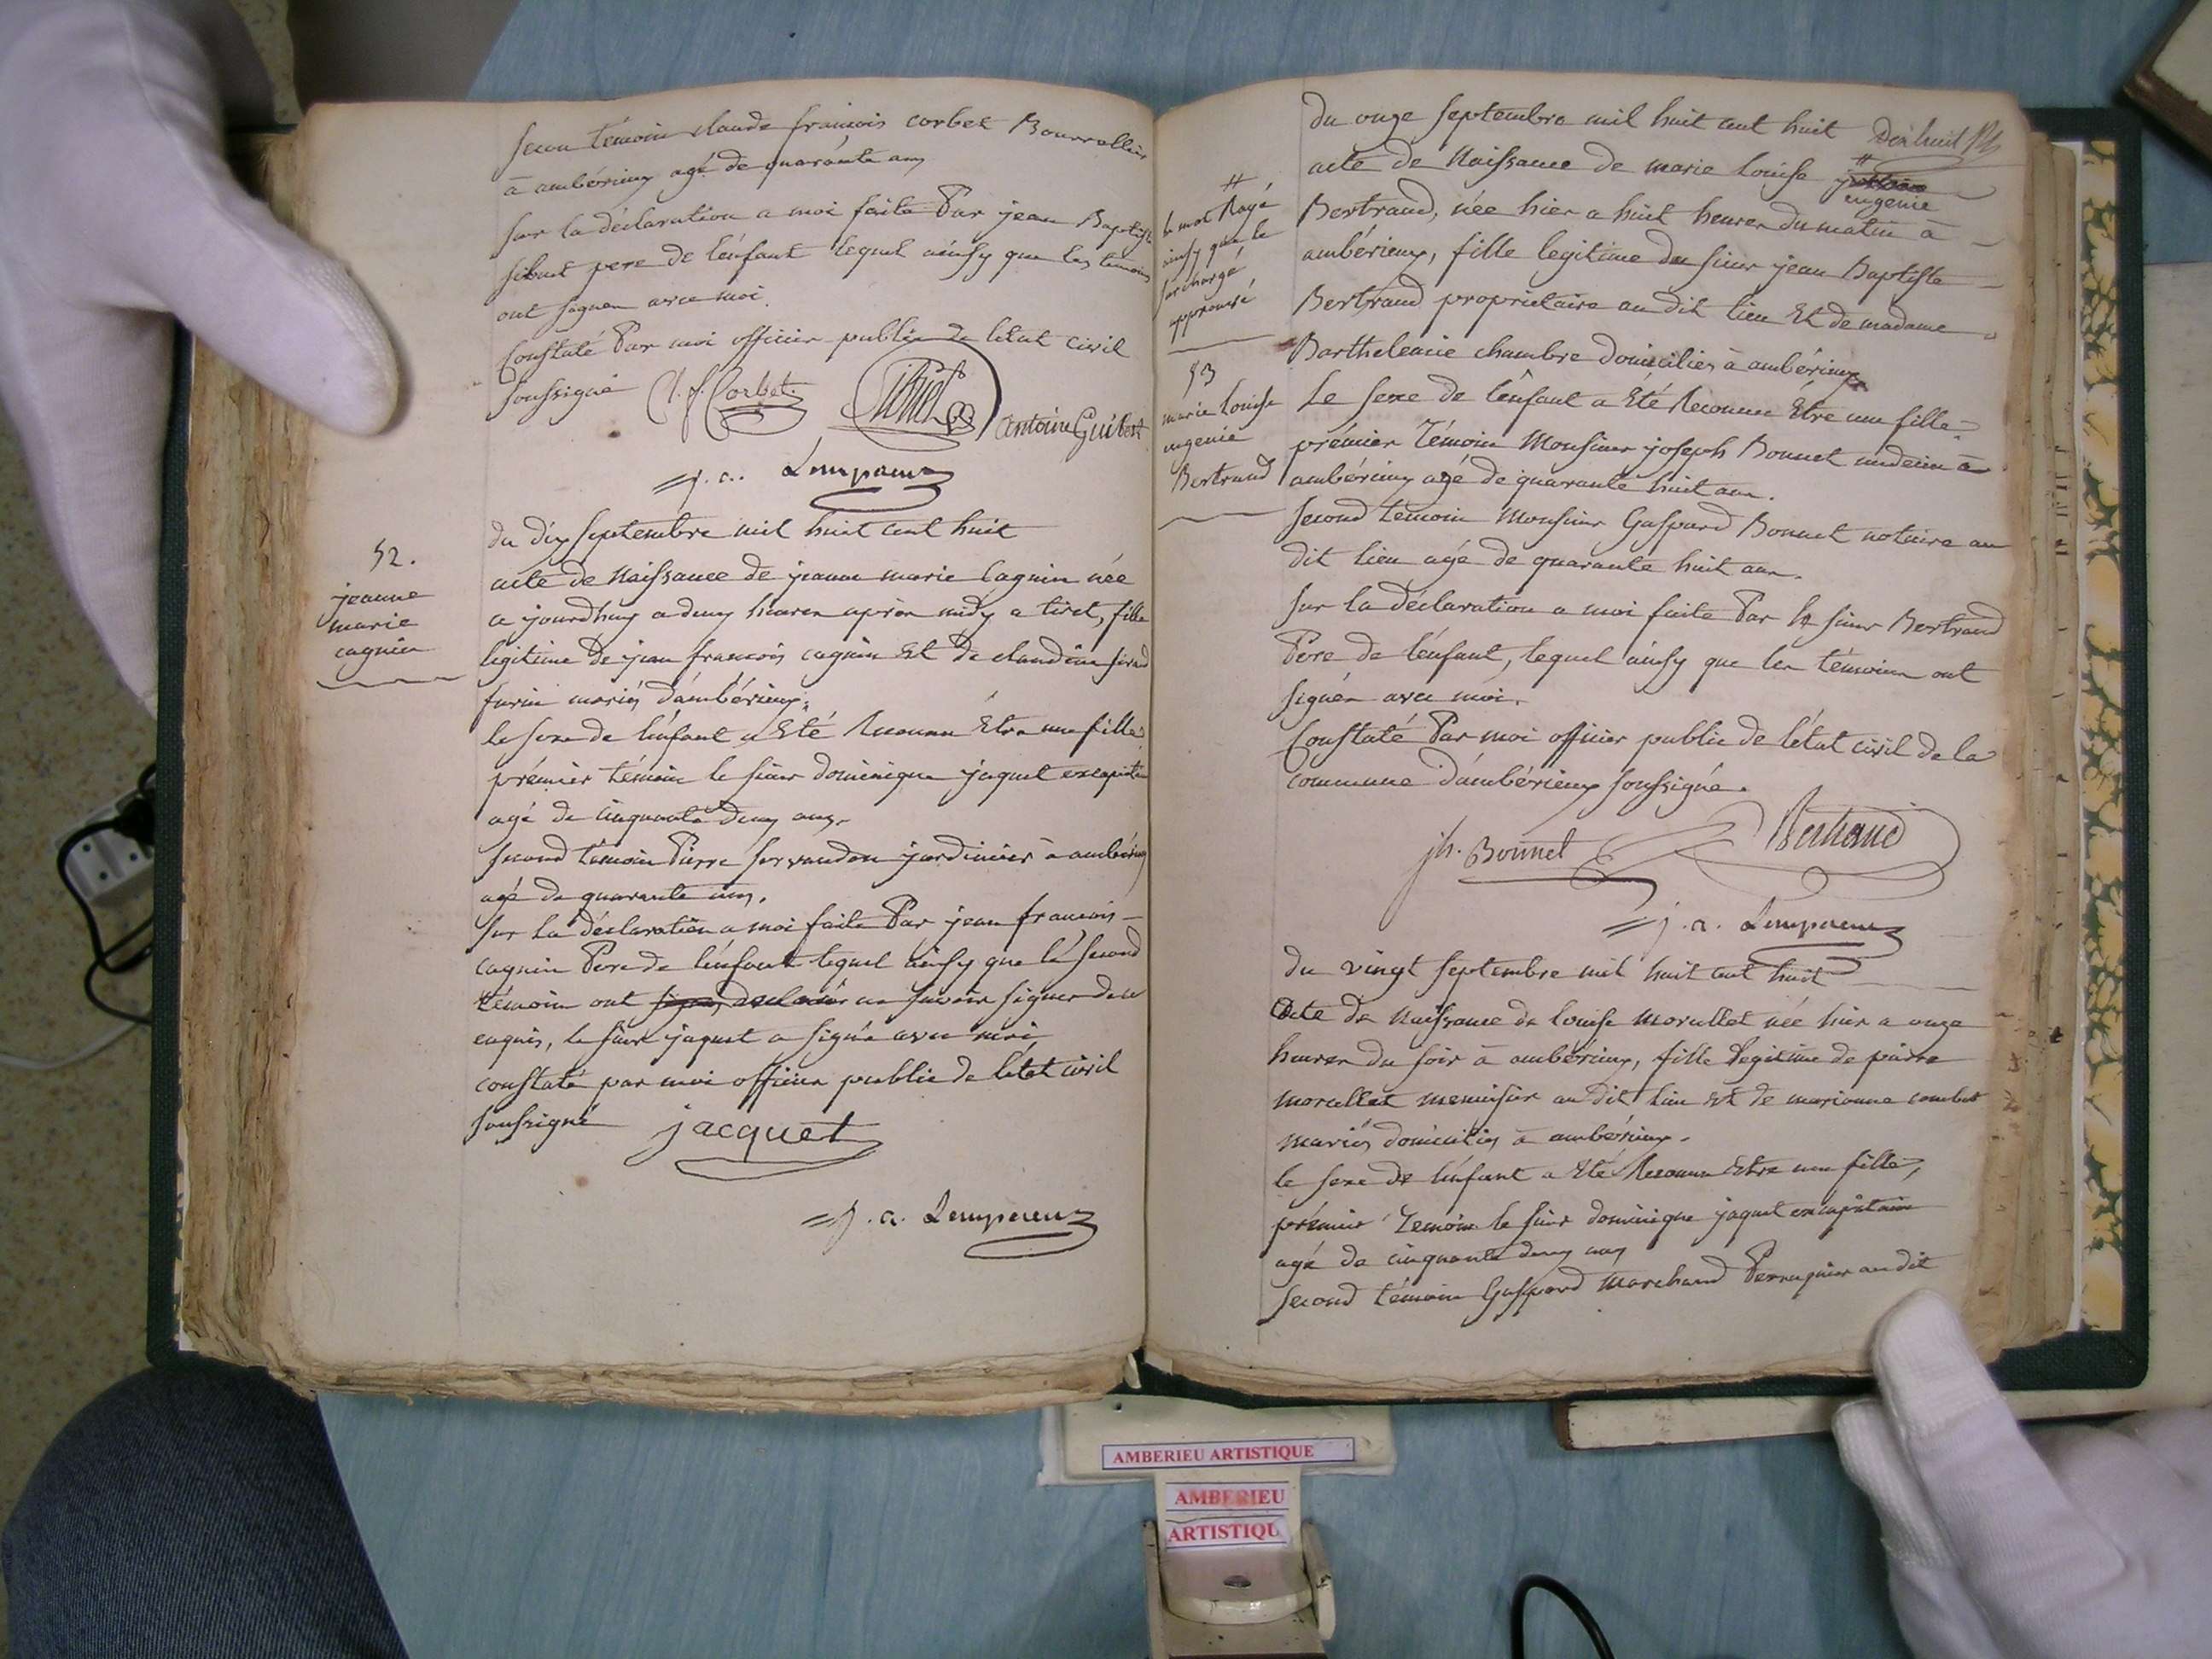 second témoin claude françois corbet Bourrellier
à ambérieux agé de quarante ans
sur la déclaration a moi faite Par jean Baptiste
sibuet pere de l'enfant lequel ainsy que les témoins
ont signer avec moi.
Constaté Par moi officier public de letat civil
soussigné C. f. Corbet Sibuet Antoine Guibert
J. a. Lempereur
52.
jeanne
marie
cagnin
du dix septembre mil huit cent huit
acte de Naissance de jeanne marie Cagnin née
a jourdhuy a deux heures après midy a tiret, fille
legitime de jean francois cagnin Et de claudine
mariés d'ambérieux.
le sexe de l'enfant a Eté Reconnu Etre une fille
prémier témoin le sieur dominique jaquet excapitaine
agé de cinquante deux ans.
second témoin Pierre servandon jardinier à ambérieux
agé de quarante ans.
sur la déclaration a moi faite Par jean francois
cagnin Pere de l'enfant lequel ainsy que le second
témoin ont signer déclaré ne savoir signer de ce
enquis, le sieur jaquet a signé avec moi
constaté par moi officier public de letat civil
soussigné jacquet
J. a. Lempereur
Dix huit
du onze septembre mil huit cent huit
acte de Naissance de marie Louise
eugenie
Bertrand, née hier a huit heures du matin à
ambérieux, fille legitime du sieur jean Baptiste
Bertrand proprietaire au dit lieu Et de madame
Barthelemie chambre domiciliés à ambérieux
Le sexe de l'enfant a Eté Reconnu Être une fille
prémier Témoin Monsieur joseph Bonnet medecin à
ambérieux agé de quarante huit ans.
second temoin Monsieur Gaspard Bonnet notaire au
dit lieu agé de quarante huit ans.
sur la déclaration a moi faite Par le sieur Bertrand
Pere de l'enfant, lequel ainsy que les témoins ont
signés avec moi.
Constaté Par moi officier public de l'état civil de la
commune d'ambérieux soussigné.
#
le mot Rayé
ainsy que le
surchargé
approuvé
53
marie Louise
eugenie
Bertrand
jh. Bonnet Bertrand
J. a. Lempereur
du vingt septembre mil huit cent huit
Acte de Naissance de louise morallet née hier a onze
heures du soir à ambérieux, fille legitime de pierre
morallet menuisier au dit lieu Et de marianne combet
mariés domiciliés à ambérieux.
le sexe de l'enfant a Eté Reconnu Estre une fille,
prémier Temoin le sieur dominique jaquet excapitaine
agé de cinquante deux ans
second témoin Gaspard Marchand Perruquier au dit
AMBERIEU ARTISTIQUE
AMBERIEU
ARTISTIQU